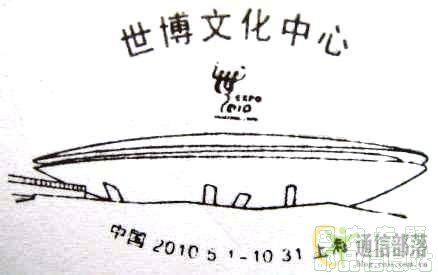 世博文化中心
EXPO
2010
中国 2010 5 1-10 31 上海
通信部落
blog.cnii.com.cn